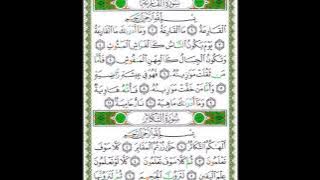 سُورَةُ القَارِعَةِ
بِسْمِ اللَّهِ الرَّحْمَٰنِ الرَّحِيمِ
الْقَارِعَةُ ١ مَا الْقَارِعَةُ ٢ وَمَا أَدْرَاكَ مَا الْقَارِعَةُ
٣ يَوْمَ يَكُونُ النَّاسُ كَالْفَرَاشِ الْمَبْثُوثِ ٤
وَتَكُونُ الْجِبَالُ كَالْعِهْنِ الْمَنْفُوشِ ٥ فَأَمَّا
مَنْ ثَقُلَتْ مَوَازِينُهُ ٦ فَهُوَ فِي عِيشَةٍ رَاضِيَةٍ
٧ وَأَمَّا مَنْ خَفَّتْ مَوَازِينُهُ ٨ فَأُمُّهُ هَاوِيَةٌ
٩ وَمَا أَدْرَاكَ مَا هِيَهْ ١٠ نَارٌ حَامِيَةٌ ١١
سُورَةُ التَّكَاثُرِ
بِسْمِ اللَّهِ الرَّحْمَٰنِ الرَّحِيمِ
أَلْهَاكُمُ التَّكَاثُرُ ١ حَتَّىٰ زُرْتُمُ الْمَقَابِرَ ٢ كَلَّا سَوْفَ
تَعْلَمُونَ ٣ ثُمَّ كَلَّا سَوْفَ تَعْلَمُونَ ٤ كَلَّا لَوْ تَعْلَمُونَ
عِلْمَ الْيَقِينِ ٥ لَتَرَوُنَّ الْجَحِيمَ ٦ ثُمَّ لَتَرَوُنَّهَا